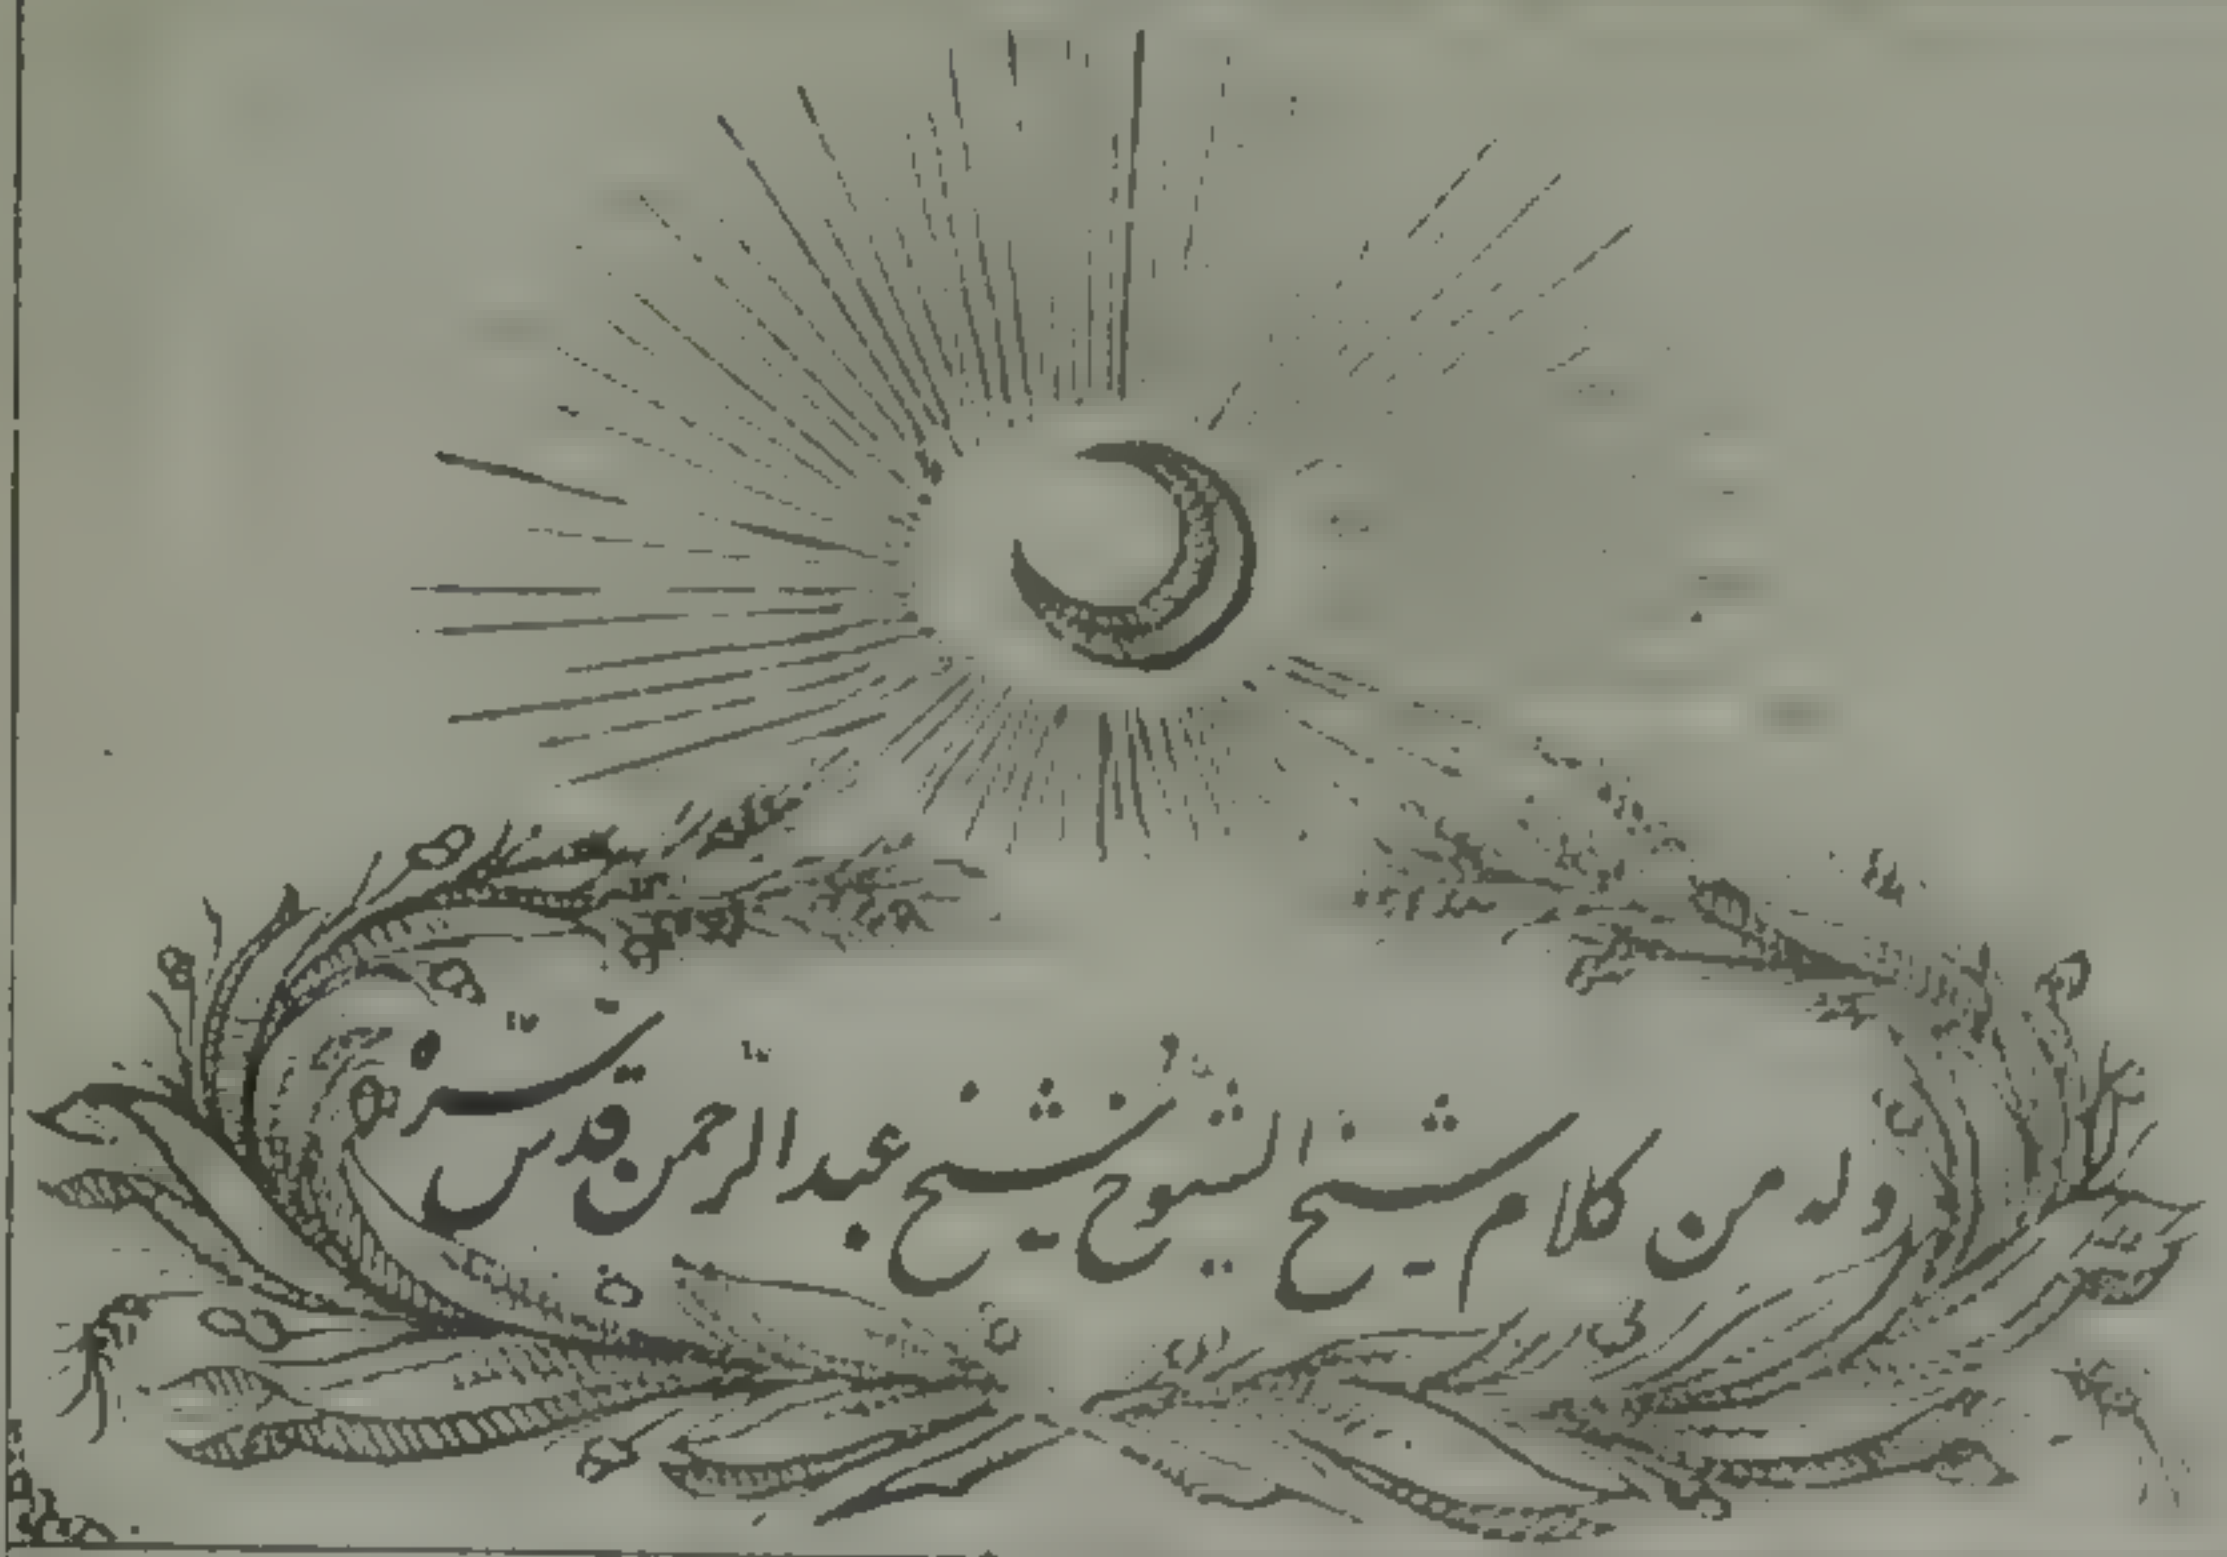 وله من كلام شيخ الشيوخ شيخ عبدالرحمن قدس سره